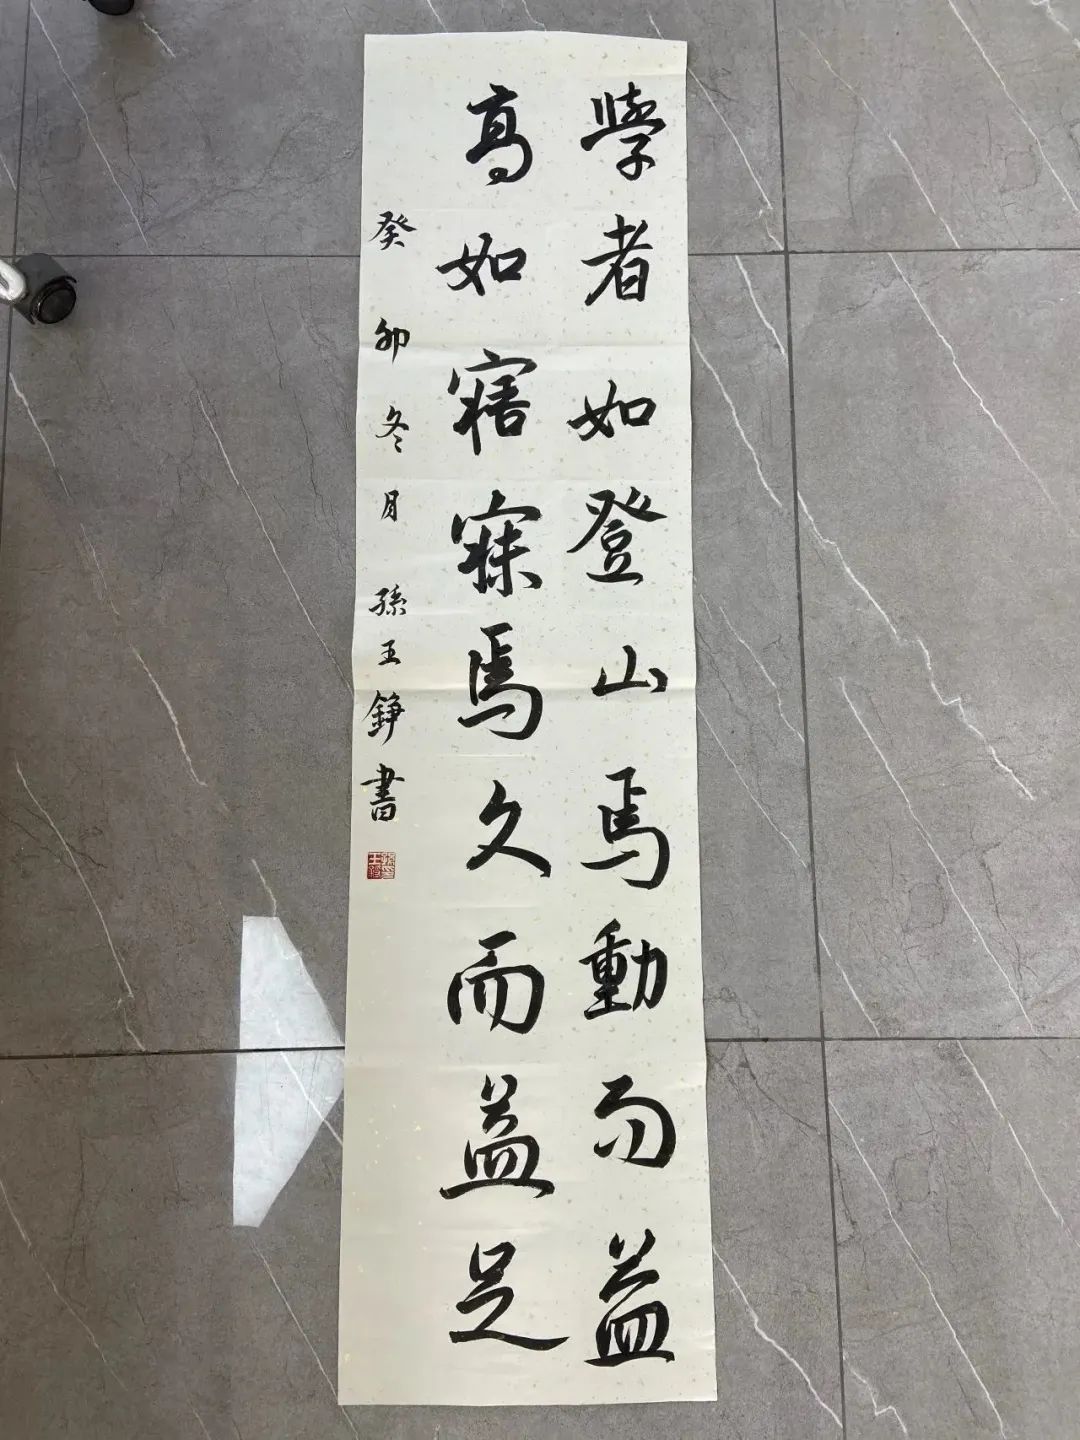 學者如登山焉動而益
高如寤寐焉久而益足
癸卯冬月孫王錚書